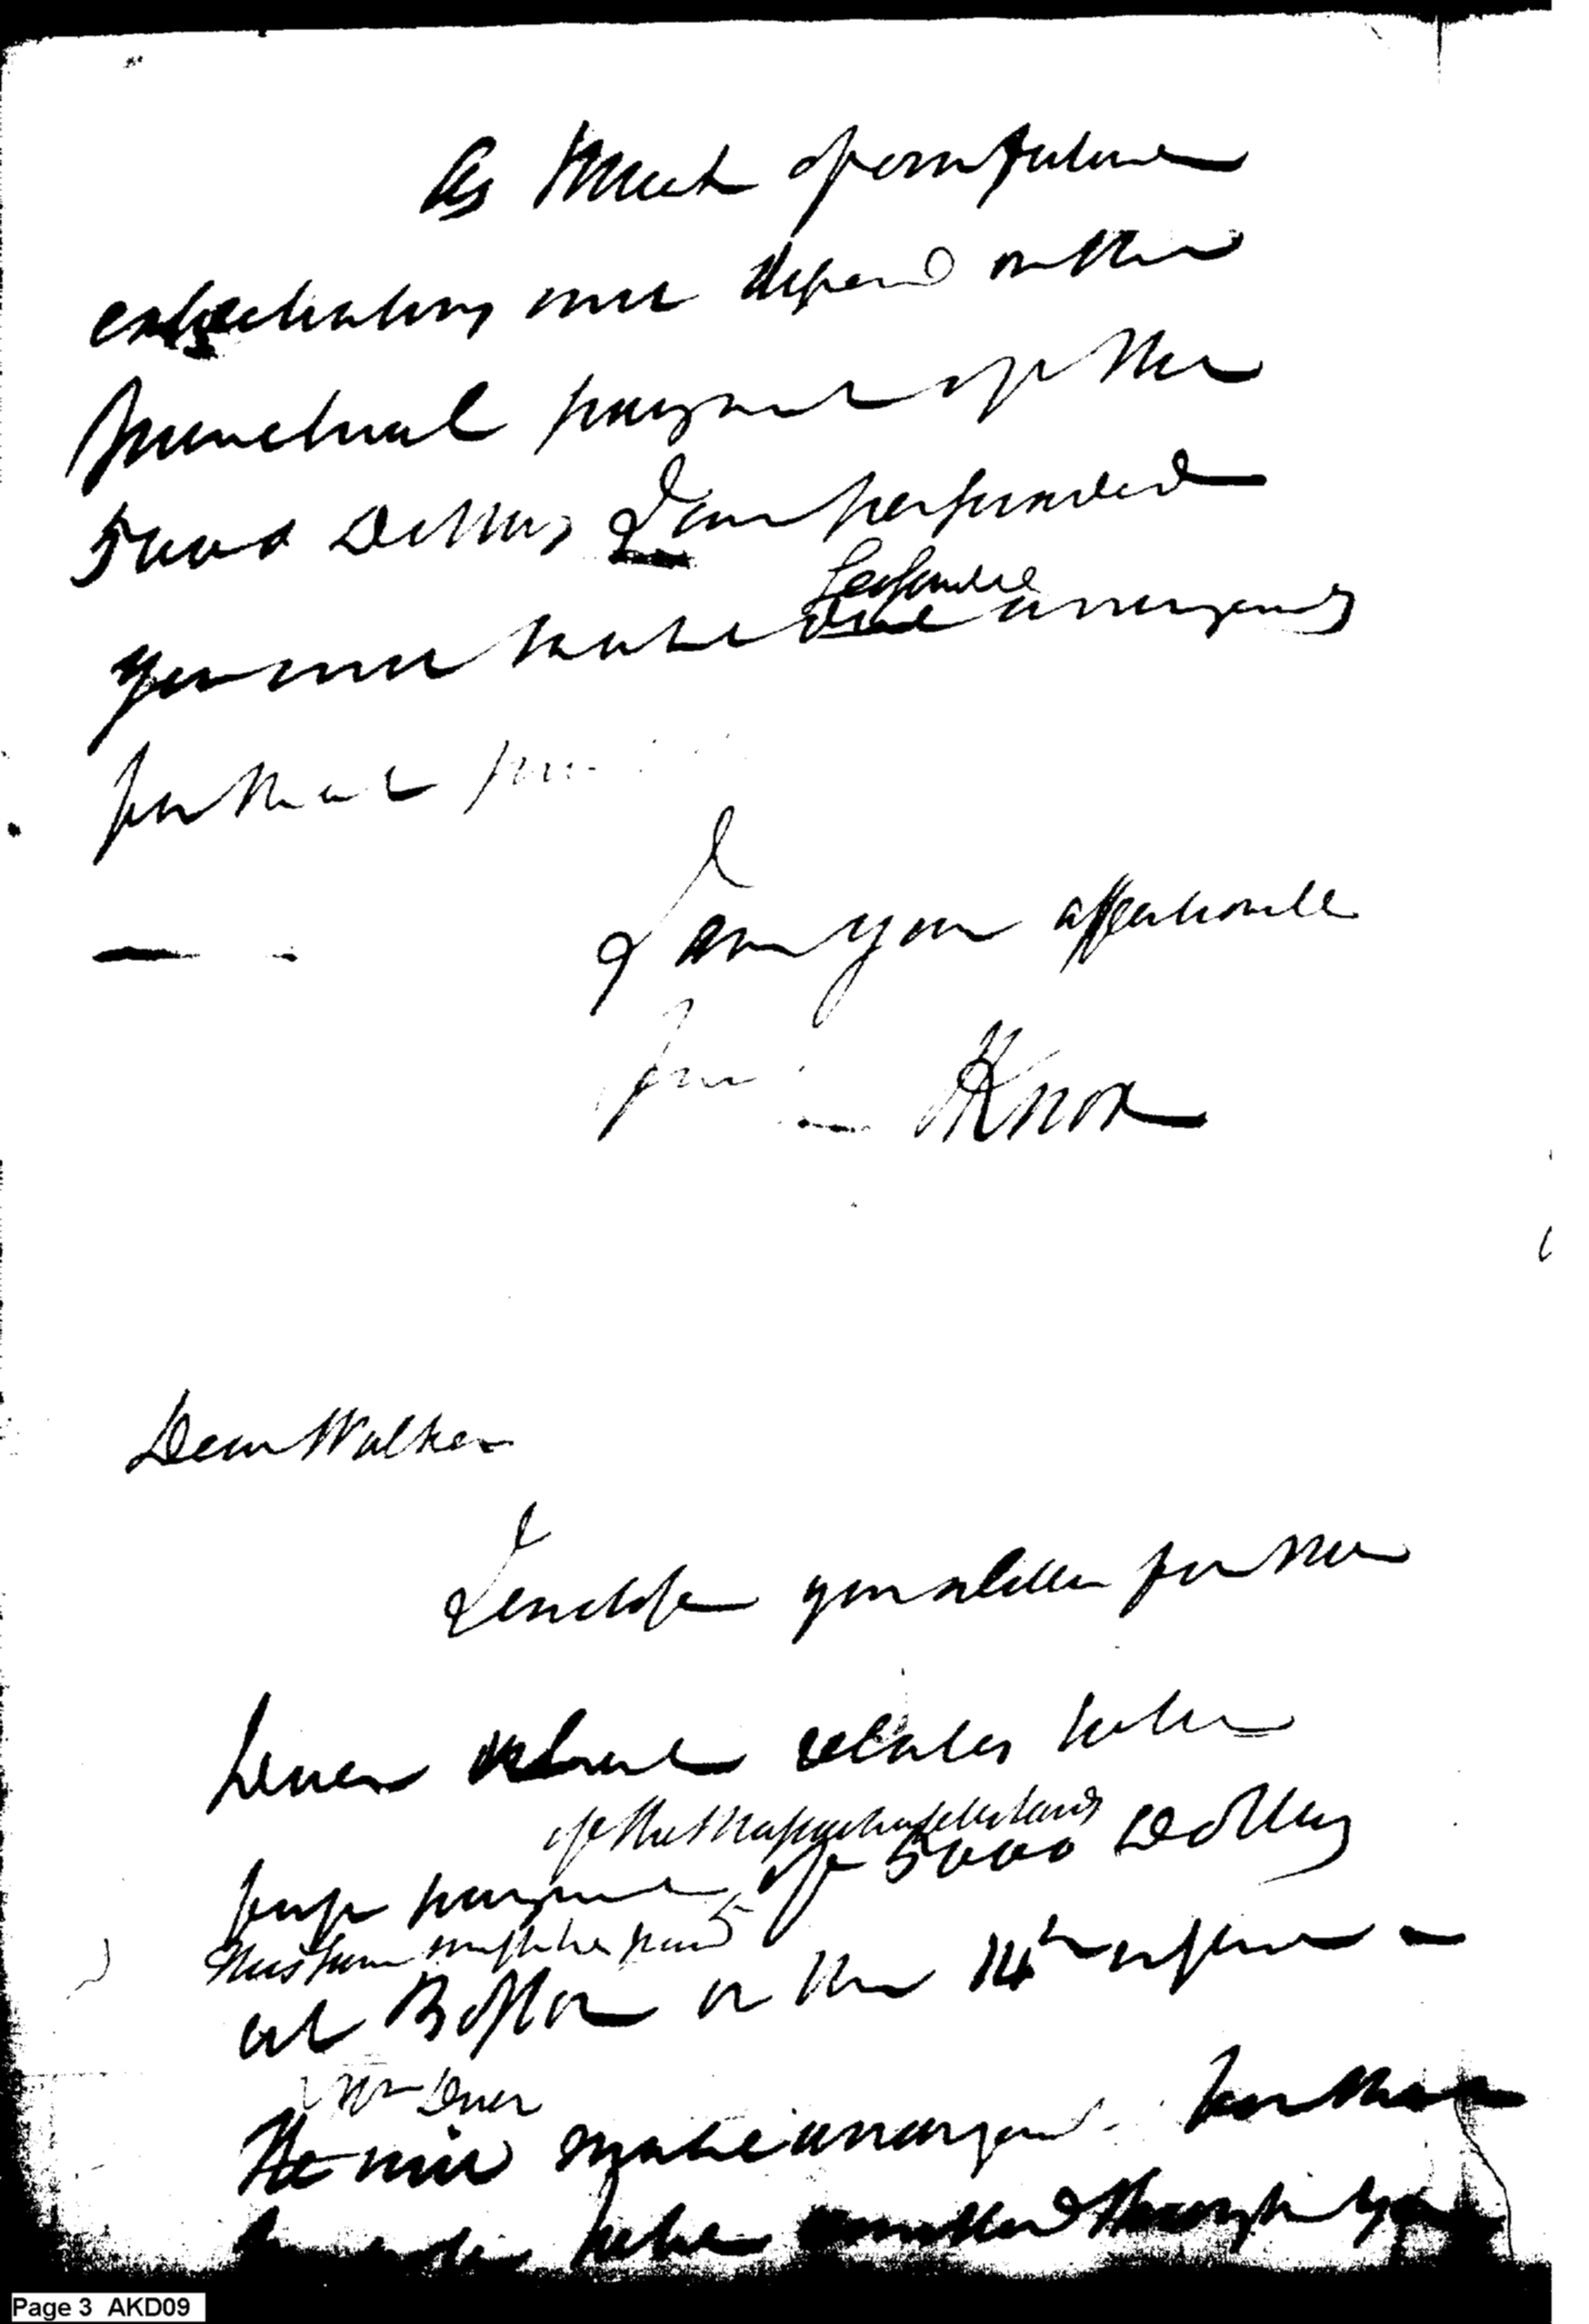 As Much of our future
expectations will depend on the
punctual payment of the
5000 Dollars I am persuaded
seasonable
you will make due arrangements
for that
I am your affectionate
Knox
Dear Walker
I enclose you a letter for Mr
Duer which relates to the
of the Massachusetts lands
first payment of 5000 Dollars
this sum must be paid
at Boston on the 14th
Mr Duer
He will make arrangements for the
to be through you
Page 3 AKD09